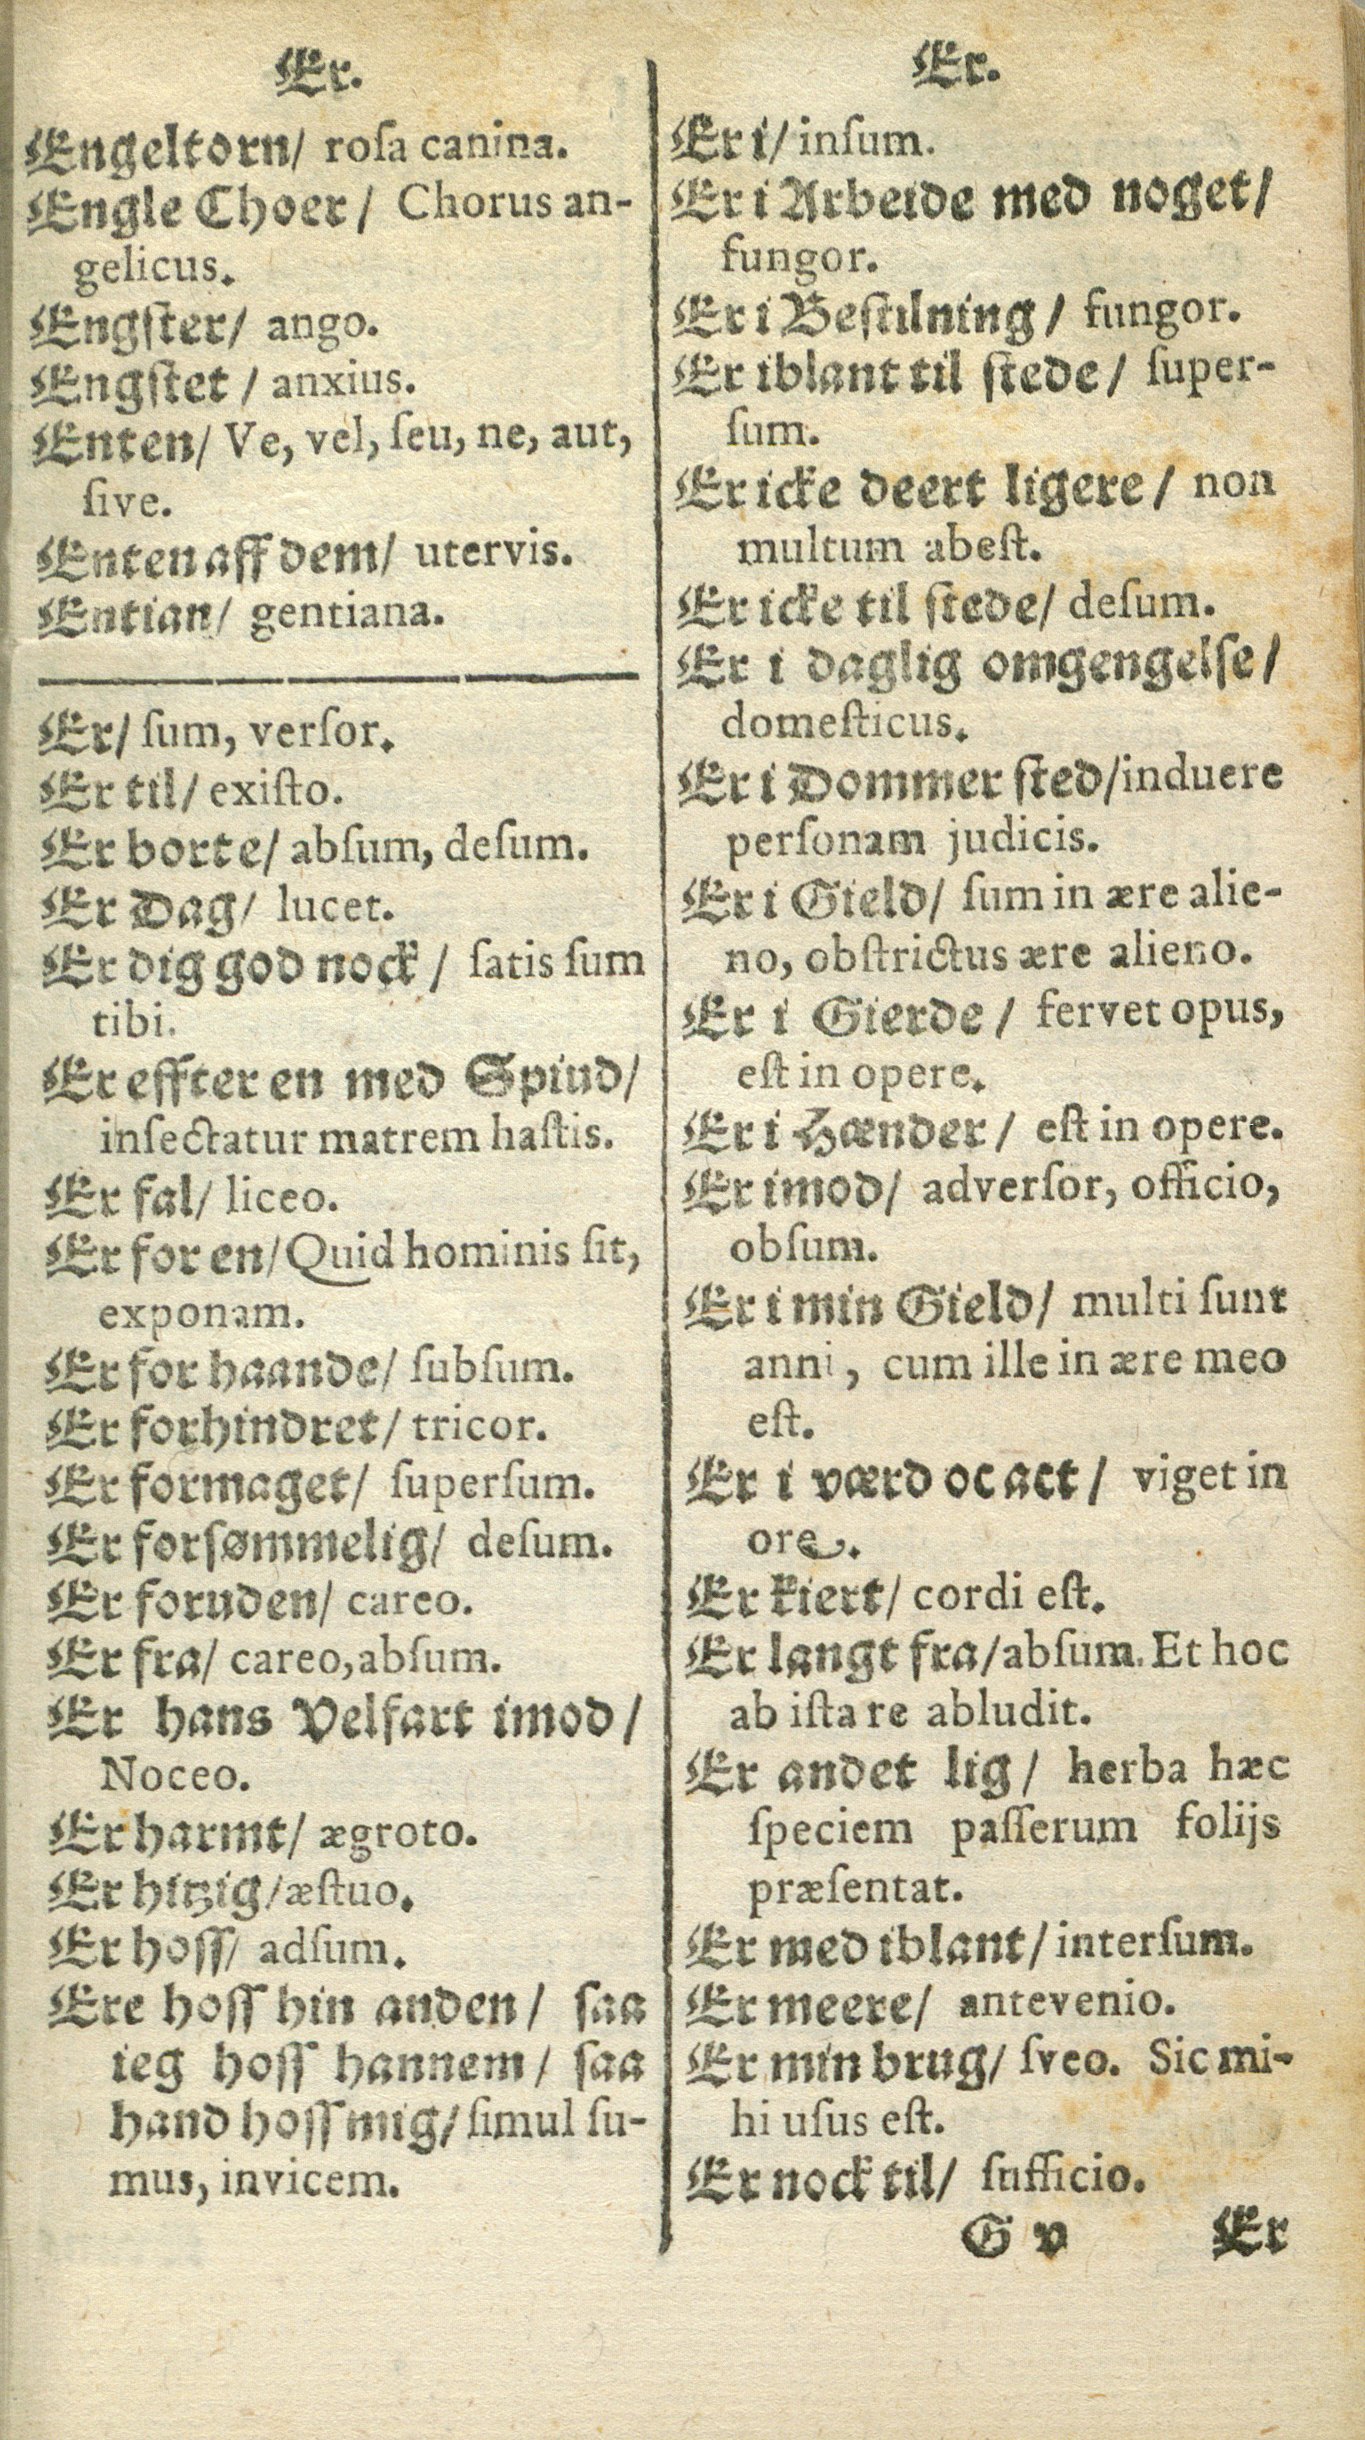 Er.
Engeltorn/ roſa canina.
Engle Choer/ Chorus an-
gelicus.
Engſter/ ango.
Engſtet/ anxius.
Enten/ Ve, vel, ſeu, ne, aut,
ſive.
Enten aff dem/ utervis.
Entian/ gentiana.
Er/ ſum, verſor.
Er til/ exiſto.
Er borte/ abſum, deſum.
Er Dag/ lucet.
Er dig god nock/ ſatis ſum
tibi.
Er effter en med Spiud/
inſectatur matrem haſtis.
Er fal/ liceo.
Er for en/ Quid hominis ſit,
exponam.
Er for haande/ ſubſum.
Er forhindret/ tricor.
Er formaget/ ſuperſum.
Er forſømmelig/ deſum.
Er foruden/ careo.
Er fra/ careo, abſum.
Er hans Velfart imod/
Noceo.
Er harmt/ ægroto.
Er hitzig/ æſtuo.
Er hoſſ/ adſum.
Ere hoſſ hin anden/ ſaa
ieg hoſſ hannem/ ſaa
hand hoſſ mig/ ſimul ſu-
mus, invicem.
Er.
Er i/ inſum.
Er i Arbeide med noget/
fungor.
Er i Beſtilning/ fungor.
Er iblant til ſtede/ ſuper-
ſum.
Er icke deert ligere/ non
multum abeſt.
Er icke til ſtede/ deſum.
Er i daglig omgengelſe/
domeſticus.
Er i Dommer ſted/ induere
perſonam judicis.
Er i Gield/ ſum in ære alie-
no, obſtrictus ære alieno.
Er i Gierde/ fervet opus,
eſt in opere.
Er i Hænder/ eſt in opere.
Er imod/ adverſor, officio,
obſum.
Er i min Gield/ multi ſunt
anni, cum ille in ære meo
eſt.
Er i værd oc act/ viget in
ore.
Er kiert/ cordi eſt.
Er langt fra/ abſum. Et hoc
ab iſta re abludit.
Er andet lig/ herba hæc
ſpeciem paſſerum folijs
præſentat.
Er med iblant/ interſum.
Er meere/ antevenio.
Er min brug/ ſveo. Sic mi-
hi uſus eſt.
Er nock til/ ſufficio.
G v Er